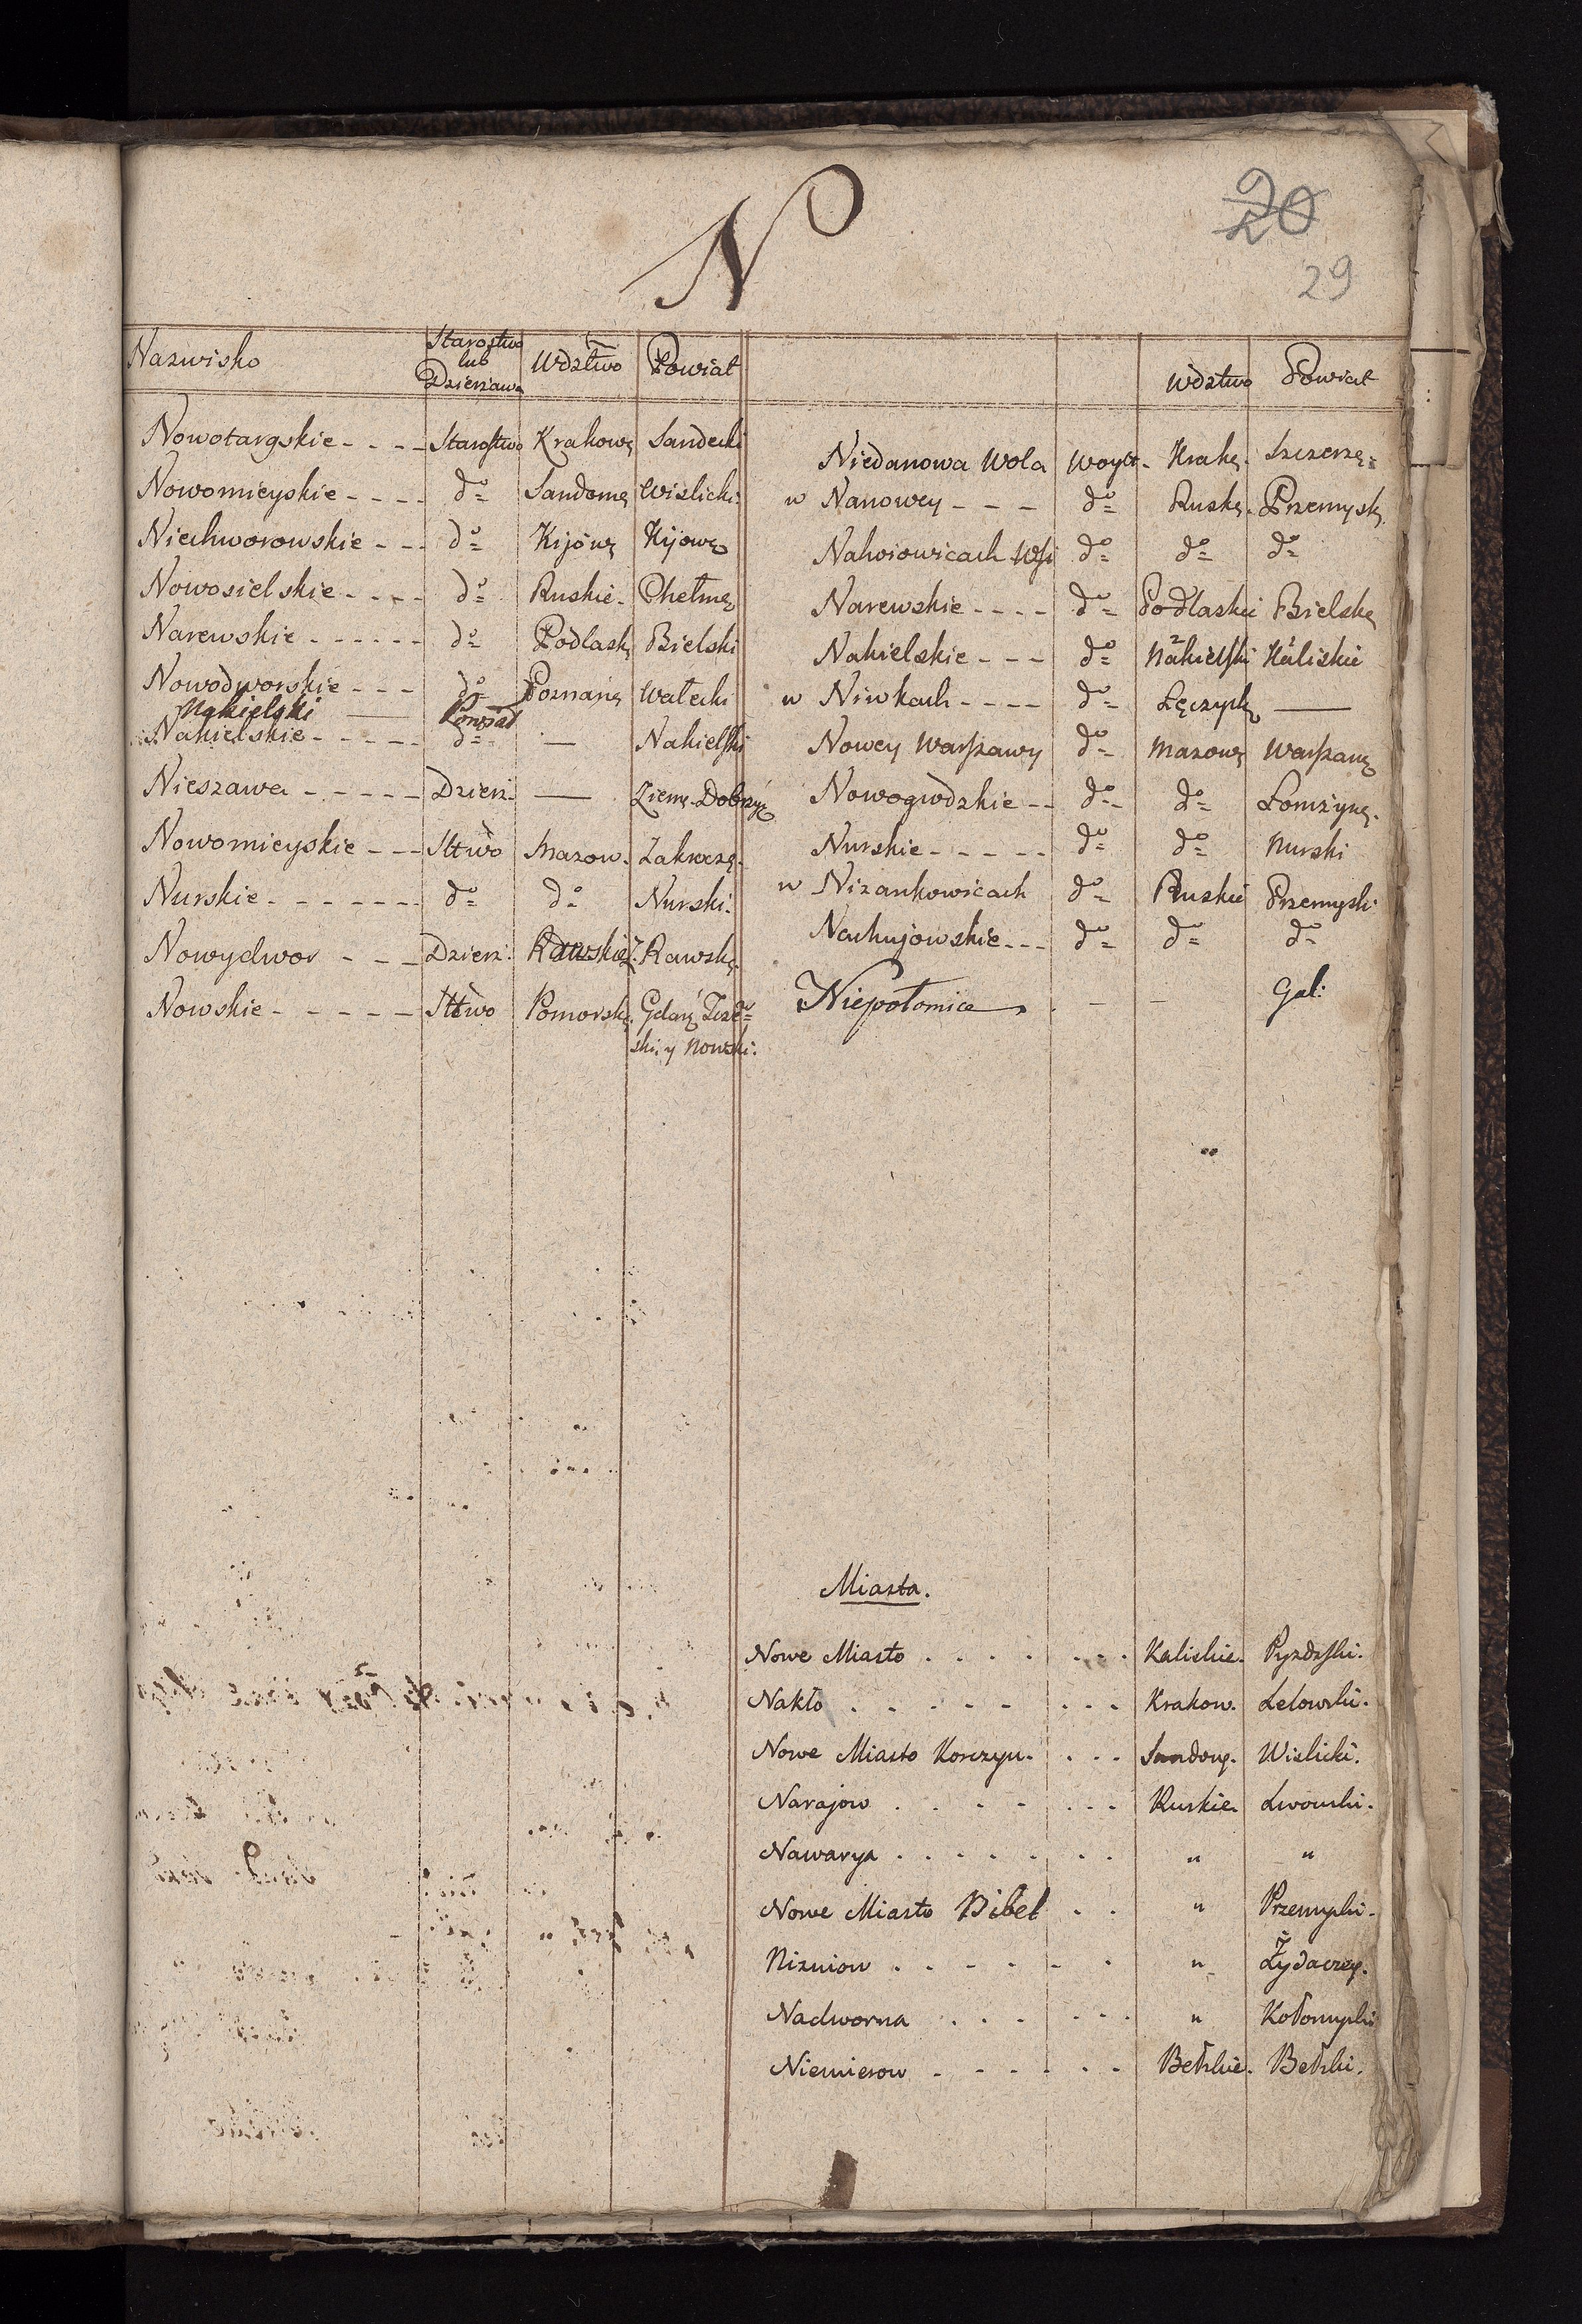 N
20
29
Nazwisko Starostwo lub Dzierżawa Wdztwo Powiat
Wdztwo Powiat
Nowotargskie - - - - Starostwo Krakowę Sandecki
Nowomieyskie - - - - do Sandomę Wislicki
Niechworowskie - - - do Kijowę Kijowę
Nowosielskie - - - - do Ruskie Chełmę
Narewskie - - - - - - do Podlaskę Bielski
Nowodworskie - - - do Poznanę Wałecki
Nakielski — Powiat
Nakielskie - - - - - do — Nakielski
Nieszawa - - - - - Dzierż. — Ziemę Dobrzyę
Nowomieyskie - - - Sttwo Mazow. Zakroczę.
Nurskie - - - - - - - do do Nurski.
Nowydwor - - - Dzierż. Rawskie Z. Rawskę.
Nowskie - - - - - - Sttwo Pomorskę.
ski, y Nowski.
Niedanowa Wola Woyt. Krakę. Szczerzę.
w Nanowey - - - do Ruskę. Przemyskę
Nahoiowicach Wsi do do do
Narewskie - - - - do Podlaskie Bielskę
Nakielskie - - - do Nakielski Kaliskie
w Niwkach - - - - do Łęczyckę —
Nowey Warszawy do Mazowę Warszawę
Nowogrodzkie - - do do Lomżynę.
Nurskie - - - - - do do Nurski
w Nizankowicach do Ruskie Przemyski
Nahujowskie - - - do do do
Niepołomice - - Gal:
Miasta.
Nowe Miasto . . . . . . . Kaliskie. Pyzdrski.
Nakło . . . . . . . . Krakow. Lelowski.
Nowe Miasto Korczyn. . . . Sandomę. Wislicki.
Narajow . . . . . . . Ruskie Lwowski.
Nawarya . . . . . . . " "
Nowe Miasto Bibel . . " Przemyski.
Nizniow . . . . . . " Żydaczeę.
Nadworna . . . . . . " Kołomyski
Niemierow . . . . . . Bełzkie. Bełzki.